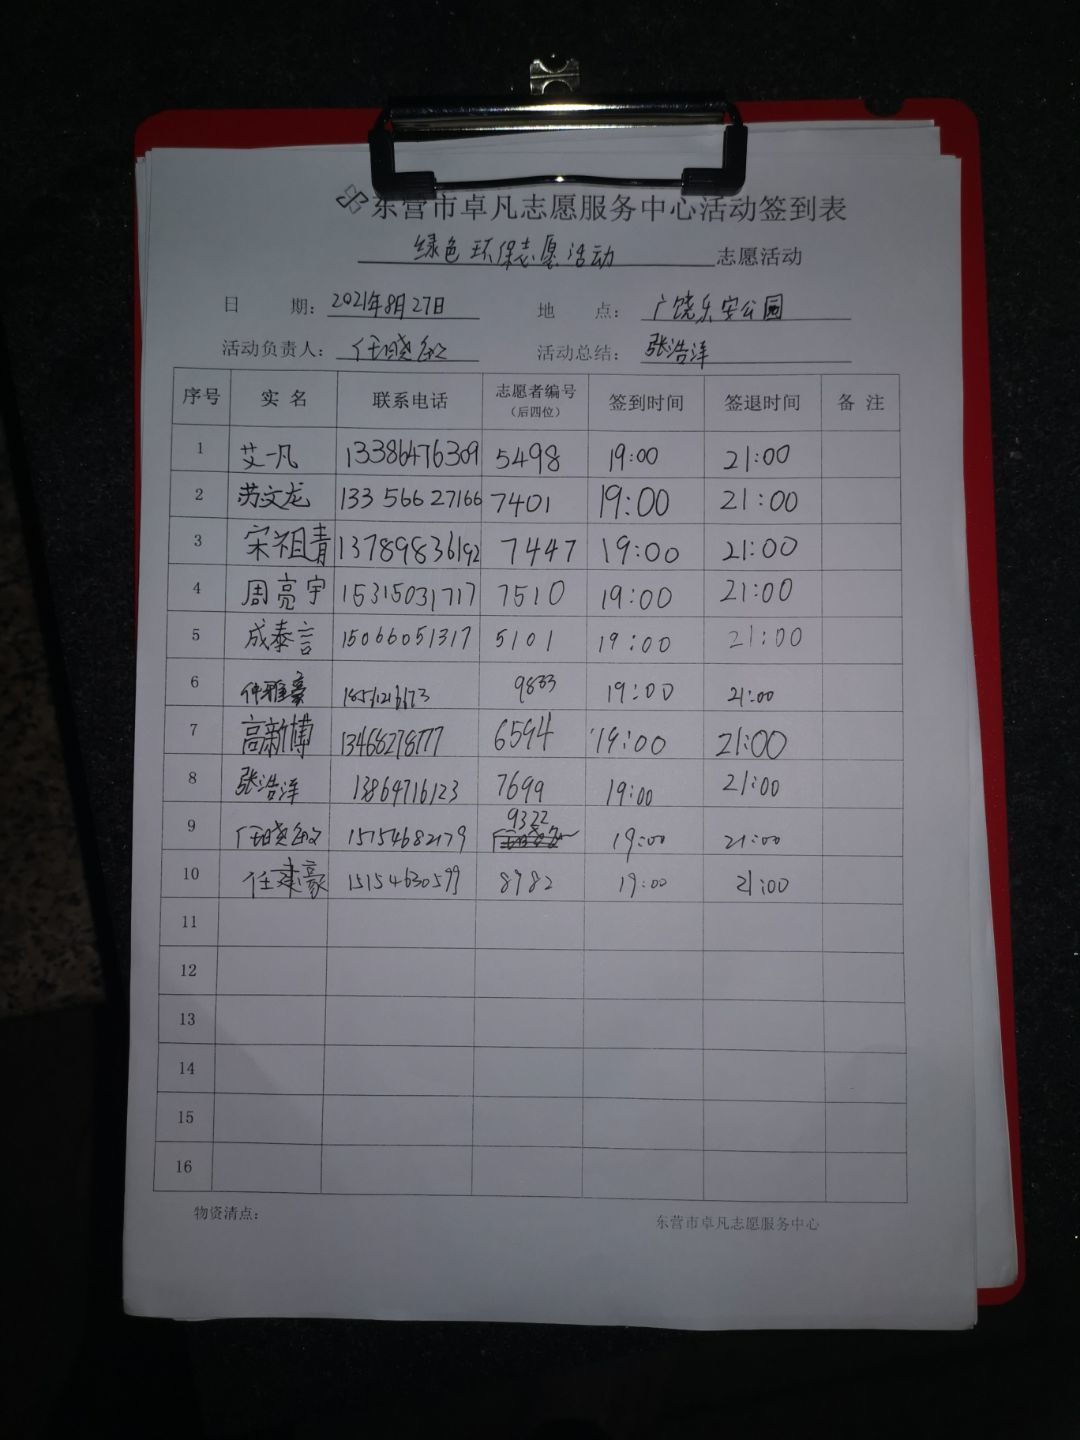 东营市卓凡志愿服务中心活动签到表
绿色环保志愿活动 志愿活动
日 期: 2021年8月27日 地 点: 广饶乐安公园
活动负责人: 任晓敏 活动总结: 张浩洋
序号 实 名 联系电话 志愿者编号（后四位） 签到时间 签退时间 备 注
1 艾一凡 13386476309 5498 19:00 21:00
2 苏文龙 13356627166 7401 19:00 21:00
3 宋祖青 13789836192 7447 19:00 21:00
4 周亮宇 15315031717 7510 19:00 21:00
5 成泰言 15066051317 5101 19:00 21:00
6 仲雅豪 9833 19:00 21:00
7 高新博 13468278777 6594 19:00 21:00
8 张浩洋 13864716123 7699 19:00 21:00
9 任晓敏 15154682179 9322 19:00 21:00
10 任建豪 15154630599 8982 19:00 21:00
11
12
13
14
15
16
物资清点: 东营市卓凡志愿服务中心